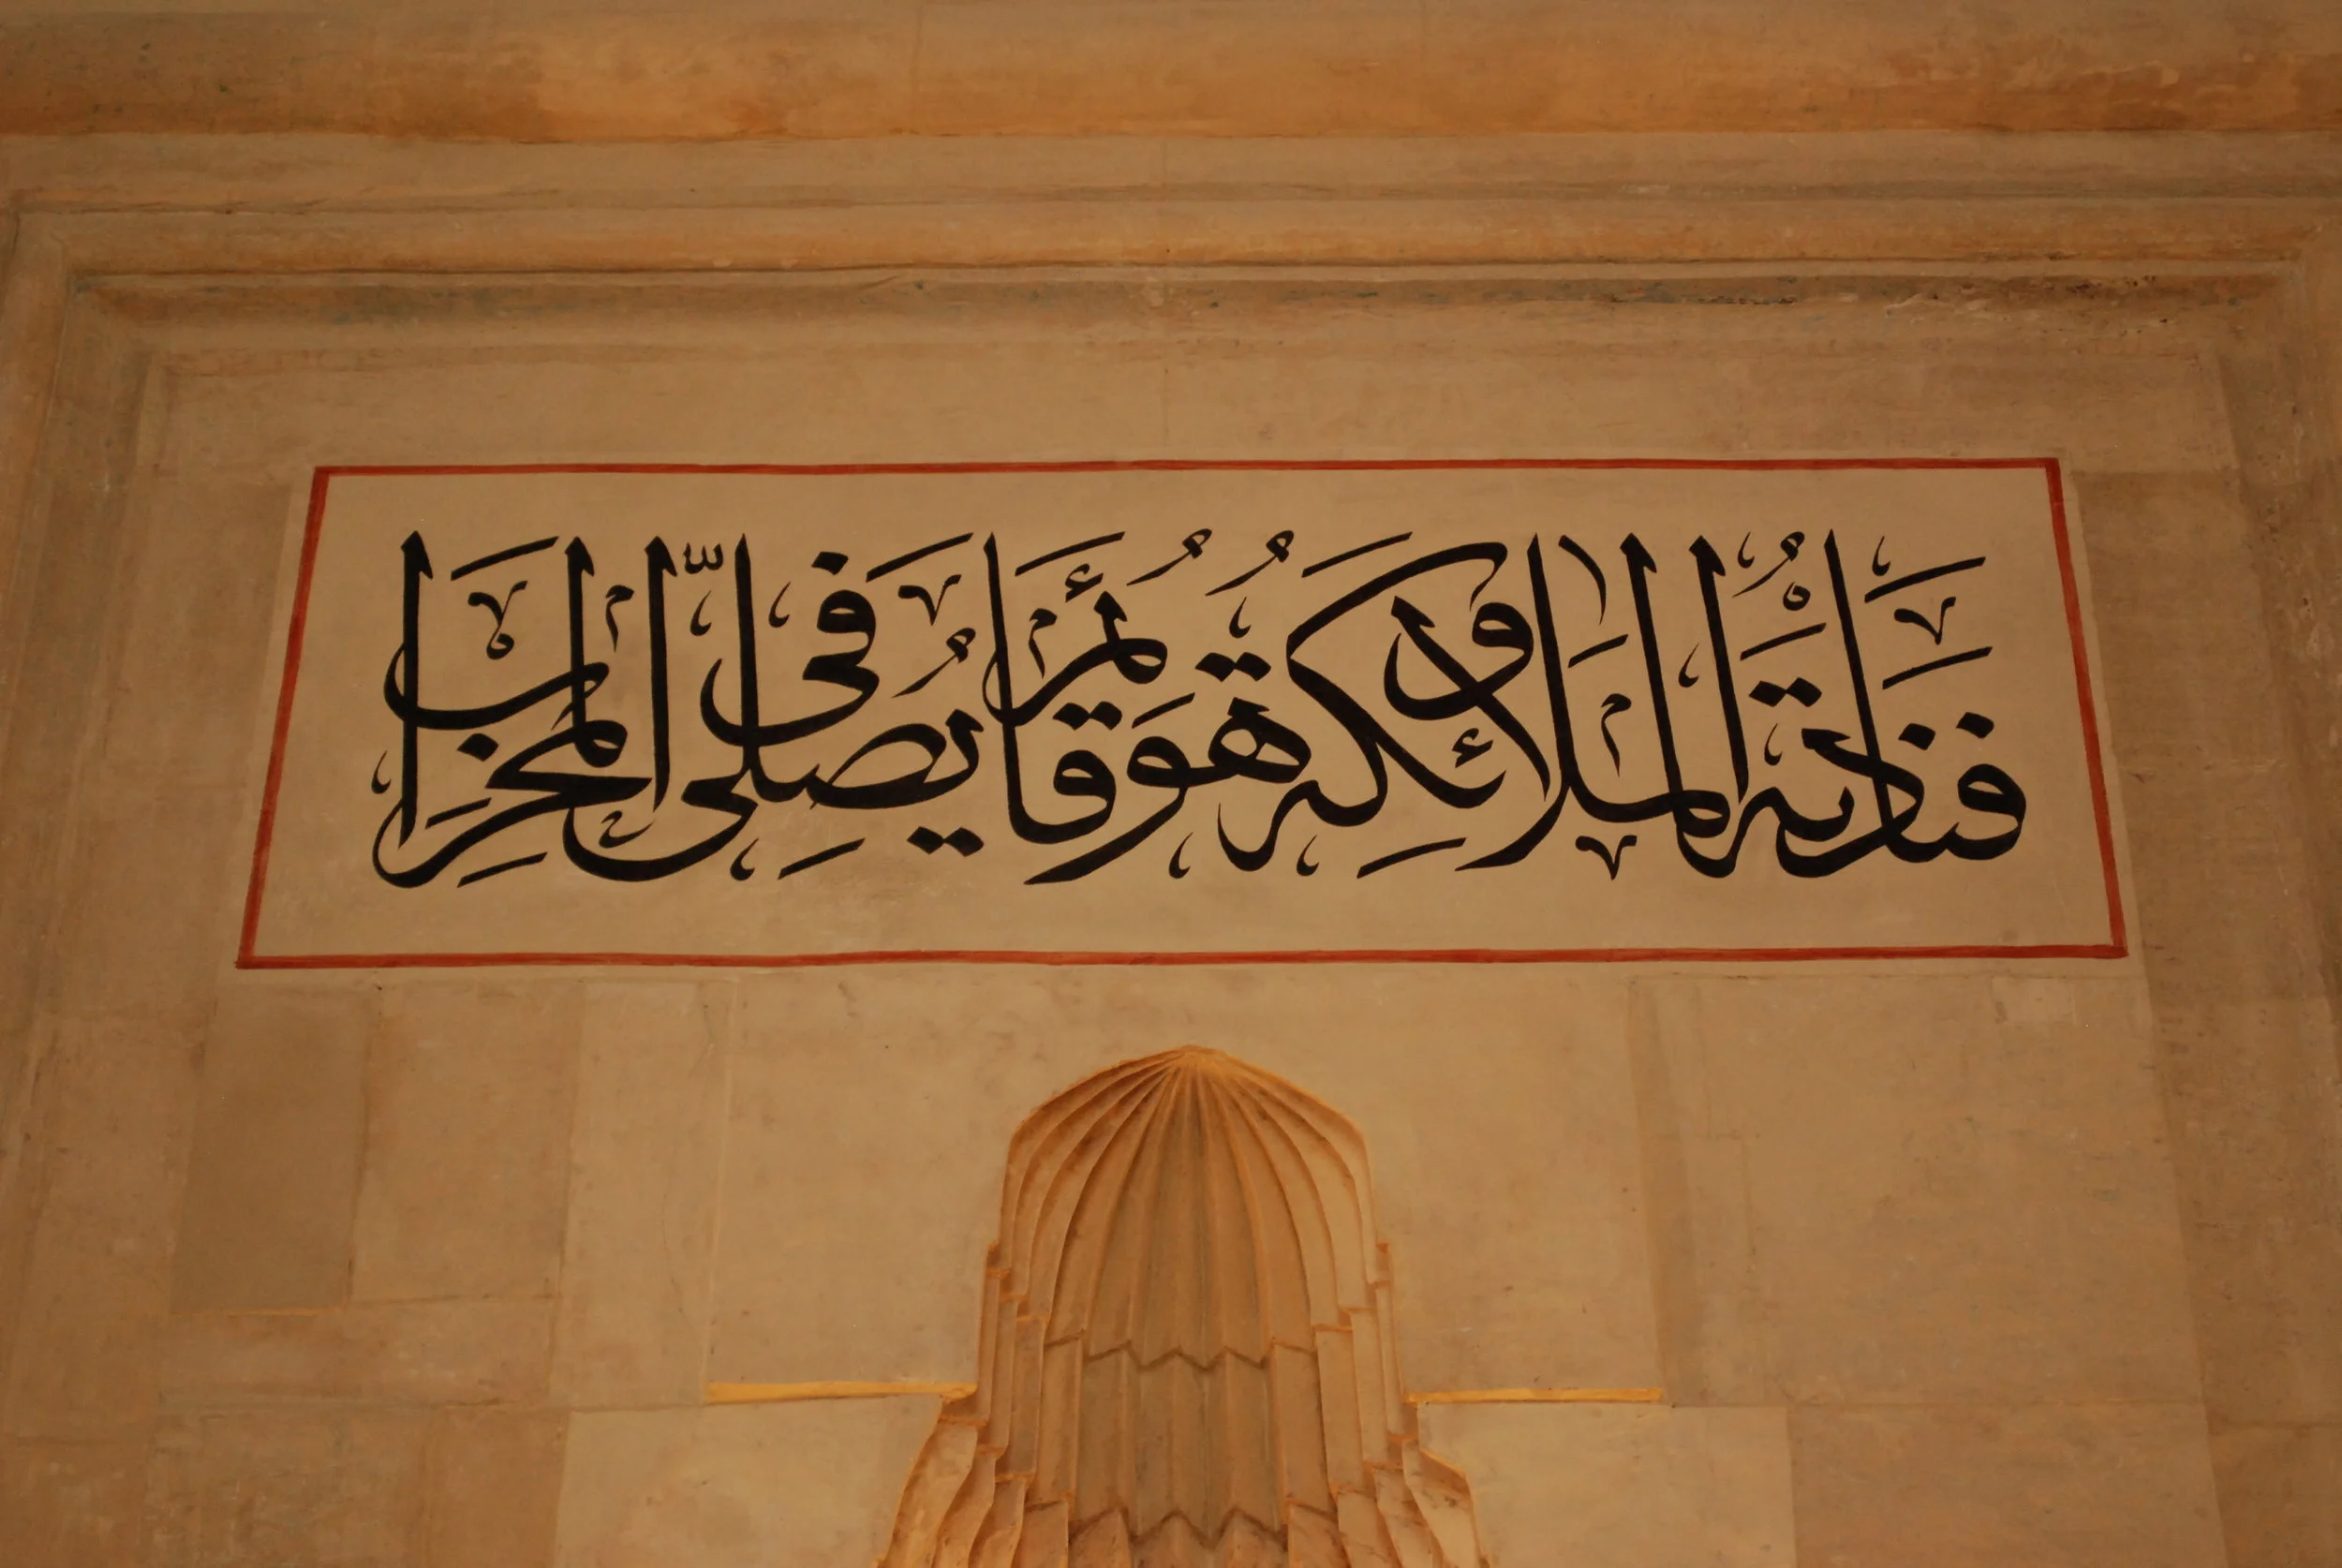 فَنَادَتْهُ الْمَلَائِكَةُ وَهُوَ قَائِمٌ يُصَلِّى فِى الْمِحْرَابِ